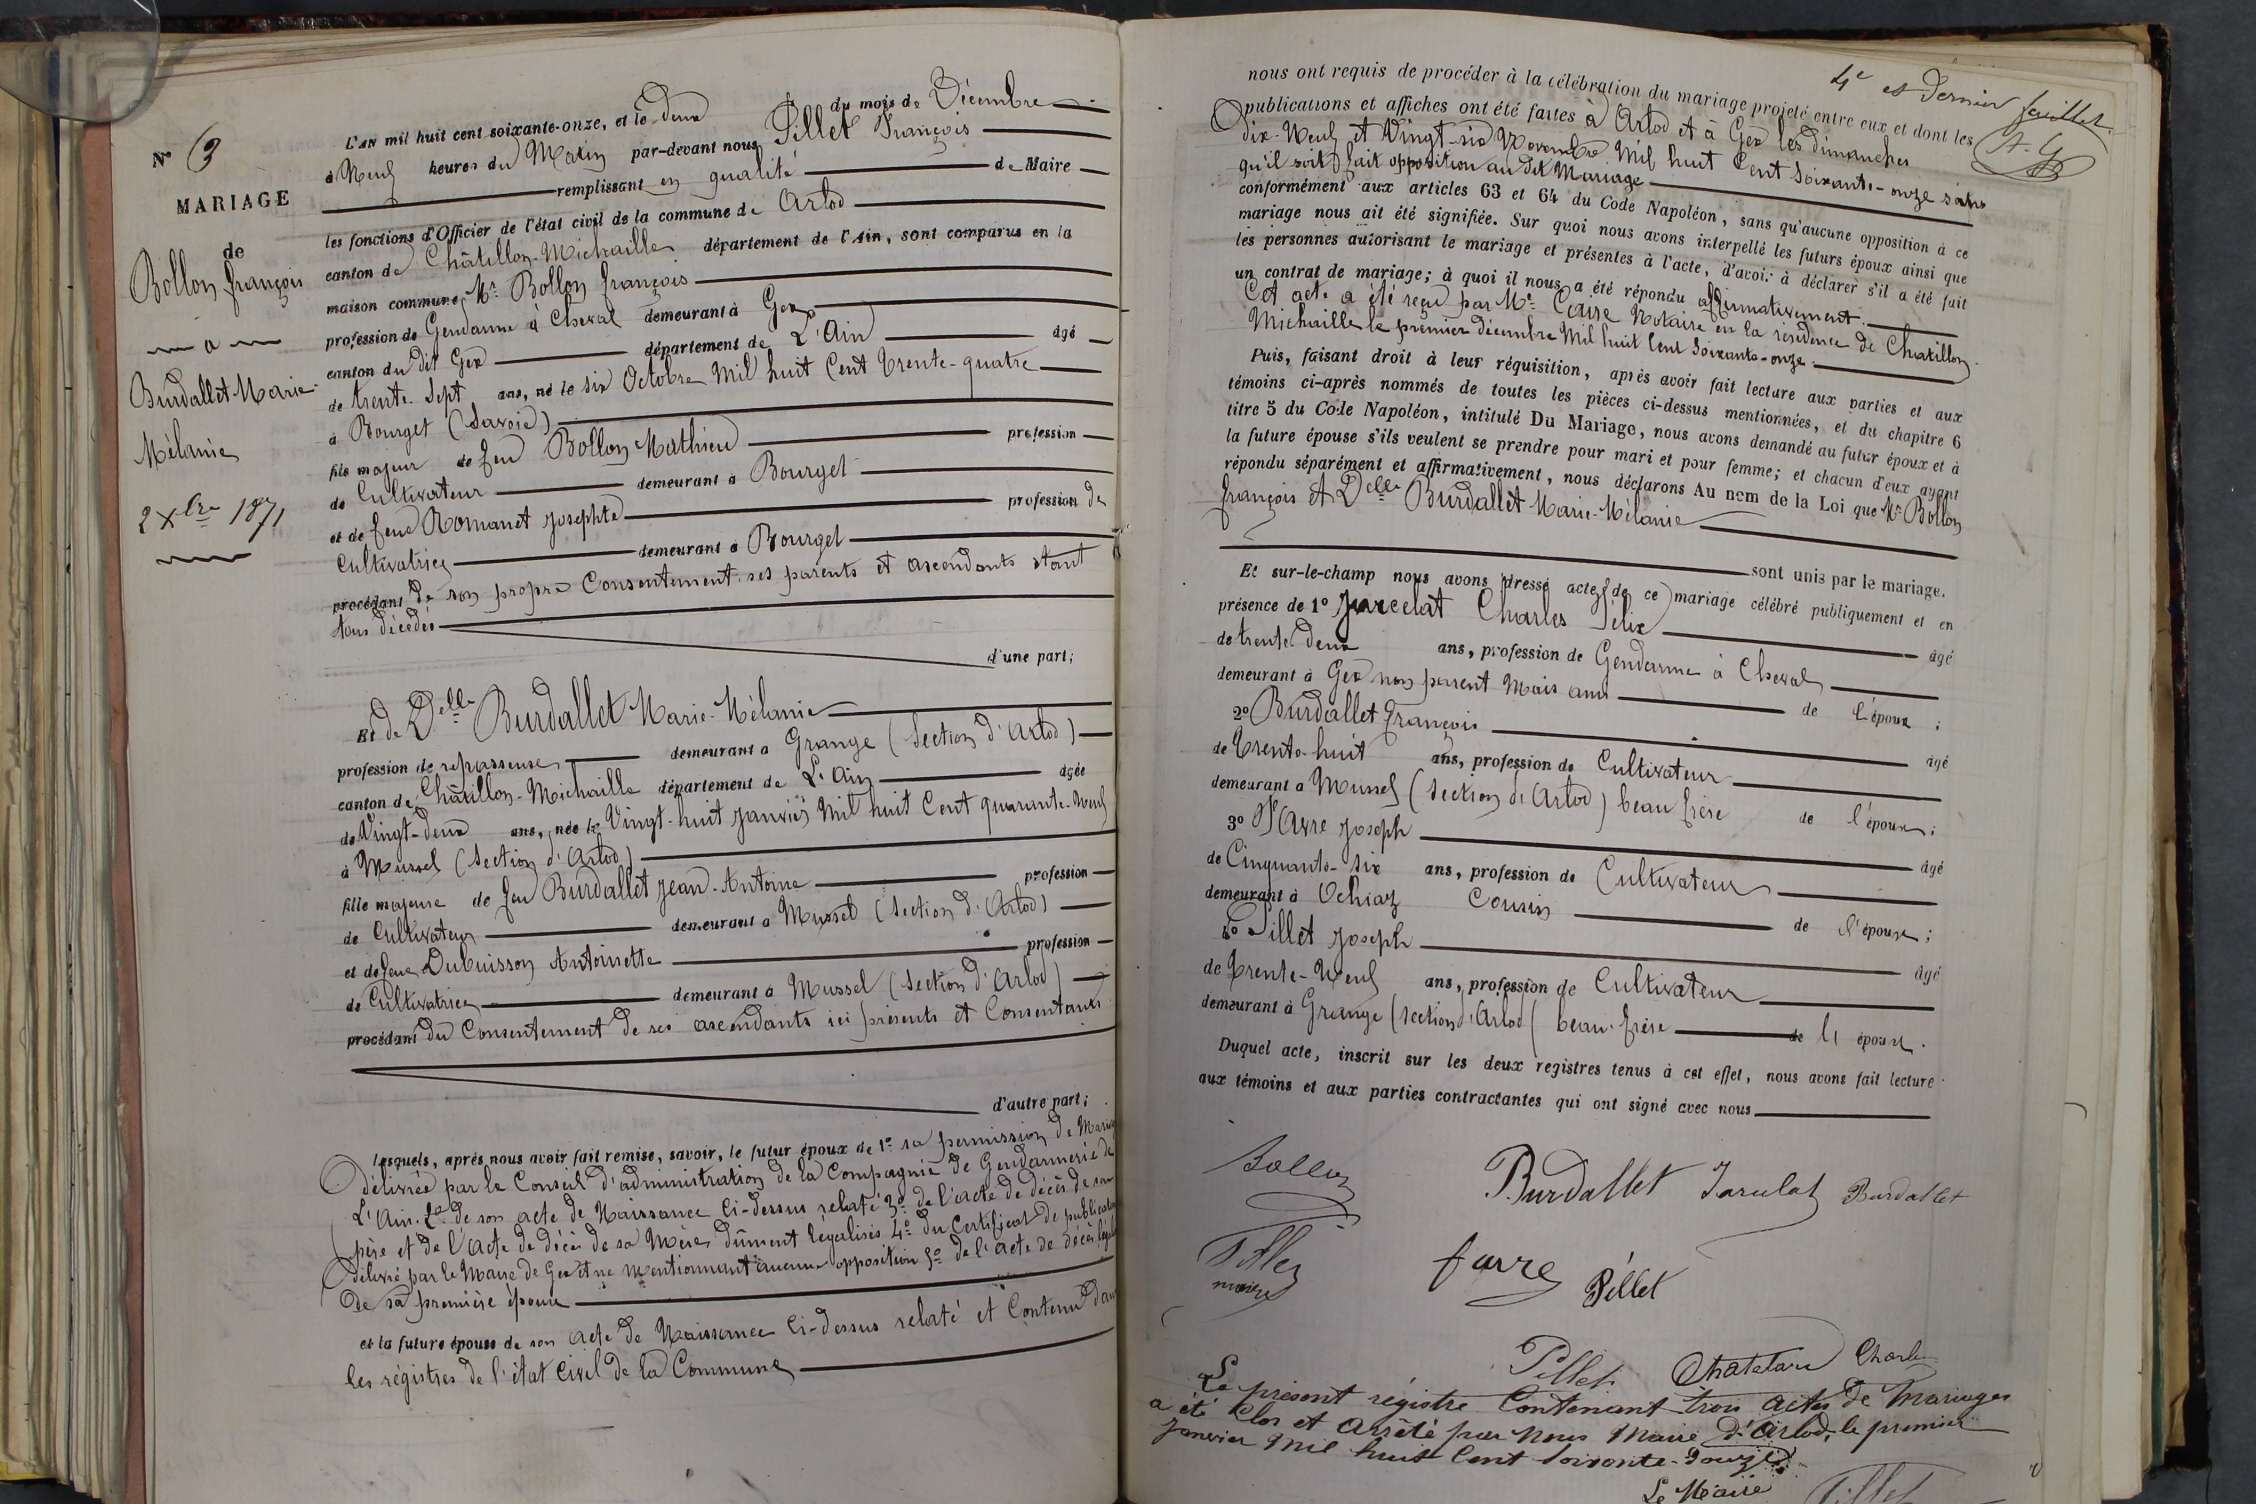 N° 3
MARIAGE
de
Bollon françois
a
Burdallet Marie
Mélanie
2 Xbre 1871
L'AN mil huit cent soixante-onze, et le deux du mois de Décembre
à Neuf heures du Matin par-devant nous Pillet François
remplissant en qualité de Maire
les fonctions d'Officier de l'état civil de la commune de Arlod
canton de Châtillon-Michaille département de l'Ain, sont comparus en la
maison commune, Mr Bollon françois
profession de Gendarme à Cheval demeurant à Gex
canton du dit Gex département de L'Ain âgé
de trente-sept ans, né le six Octobre Mil huit Cent trente-quatre
à Bourget (Savoie)
fils majeur de feu Bollon Mathieu profession
de Cultivateur demeurant à Bourget
et de feue Romanet Josephte profession de
Cultivatrice demeurant à Bourget
procédant de son propre Consentement ses parents et ascendants étant
tous décédés
d'une part;
Et de Delle Burdallet Marie-Mélanie
profession de repasseuse demeurant à Grange (Section d'Arlod)
canton de Châtillon-Michaille département de L'Ain âgée
de Vingt-deux ans, née le Vingt-huit Janvier Mil huit Cent quarante-Neuf
à Mussel (Section d'Arlod)
fille majeure de feu Burdallet Jean-Antoine profession
de Cultivateur demeurant à Mussel (Section d'Arlod)
et de feue Dubuisson Antoinette profession
de Cultivatrice demeurant à Mussel (Section d'Arlod)
procédant du Consentement de ses ascendants ici présents et Consentants
d'autre part;
lesquels, après nous avoir fait remise, savoir, le futur époux de 1° sa permission de Mariage
délivrée par le Conseil d'administration de la Compagnie de Gendarmerie de
L'Ain. 2° de son acte de Naissance Ci-dessus relaté 3° de l'acte de décès de son
père et de l'acte de décès de sa Mère dûment légalisés 4° du Certificat de publication
délivré par le Maire de Gex et ne mentionnant aucune opposition 5° de l'acte de décès légalisé
de sa première épouse
et la future épouse de son acte de Naissance Ci-dessus relaté et Contenu dans
les régistres de l'état Civil de la Commune
4e et Dernier feuillet
nous ont requis de procéder à la célébration du mariage projeté entre eux et dont les
publications et affiches ont été faites à Arlod et à Gex les dimanches
dix-Neuf et Vingt-six Novembre Mil huit Cent Soixante-onze sans
qu'il soit fait opposition au dit Mariage
conformément aux articles 63 et 64 du Code Napoléon, sans qu'aucune opposition à ce
mariage nous ait été signifiée. Sur quoi nous avons interpellé les futurs époux ainsi que
les personnes autorisant le mariage et présentes à l'acte, d'avoir à déclarer s'il a été fait
un contrat de mariage; à quoi il nous a été répondu affirmativement.
Cet acte a été reçu par Me Caire Notaire en la résidence de Chatillon
Michaille le premier décembre Mil huit Cent Soixante-onze.
Puis, faisant droit à leur réquisition, après avoir fait lecture aux parties et aux
témoins ci-après nommés de toutes les pièces ci-dessus mentionnées, et du chapitre 6
titre 5 du Code Napoléon, intitulé Du Mariage, nous avons demandé au futur époux et à
la future épouse s'ils veulent se prendre pour mari et pour femme; et chacun d'eux ayant
répondu séparément et affirmativement, nous déclarons Au nom de la Loi que Mr Bollon
françois et Delle Burdallet Marie-Mélanie
sont unis par le mariage.
Et sur-le-champ nous avons dressé acte de ce mariage célébré publiquement et en
présence de 1° Jarcelat Charles Félix âgé
de trente deux ans, profession de Gendarme à Cheval
demeurant à Gex non parent Mais ami de l'époux ;
2° Burdallet François âgé
de Trente-huit ans, profession de Cultivateur
demeurant à Mussel (Section d'Arlod) beau frère de l'époux ;
3° Favre Joseph âgé
de Cinquante-six ans, profession de Cultivateur
demeurant à Ochiaz Cousin de l'épouse ;
4° Pillet Joseph âgé
de Trente-Neuf ans, profession de Cultivateur
demeurant à Grange (section d'Arlod) beau-frère de l'époux.
Duquel acte, inscrit sur les deux registres tenus à cet effet, nous avons fait lecture
aux témoins et aux parties contractantes qui ont signé avec nous
Bollon Burdallet Jarcelat Burdallet
Pillet favre Pillet
maire
Pillet Chatelard Charles
Le présent régistre Contenant trois actes de Mariages
a été Clos et Arrêté par Nous Maire d'Arlod, le premier
Janvier Mil huit Cent soixante-Douze.
Le Maire Pillet